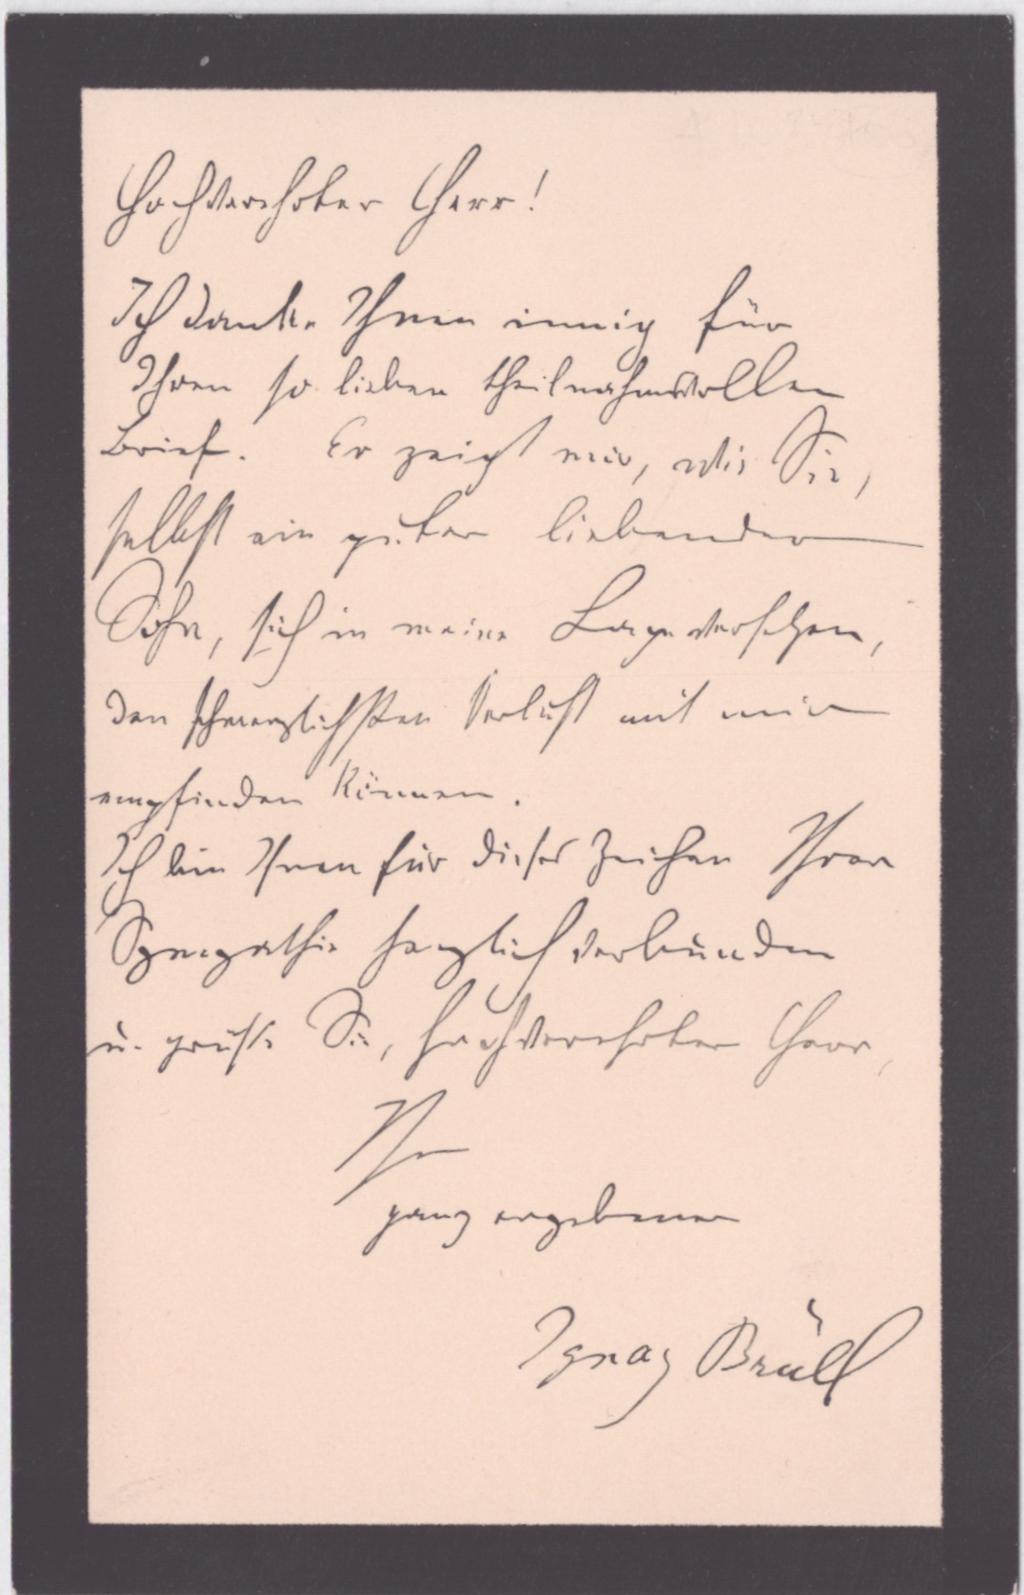 Hochverehrter Herr!
Ich danke Ihnen innig für
Ihren so lieben theilnahmsvollen
Brief. Er zeigt mir, wie Sie,
selbst ein guter liebender
Sohn, sich in meine Lage versetzen,
den schmerzlichsten Verlust mit mir
empfinden können.
Ich bin Ihnen für dieses Zeichen Ihrer
Sympathie herzlich verbunden
u. grüße Sie, hochverehrter Herr,
Ihr
ganz ergebener
Ignaz Brüll